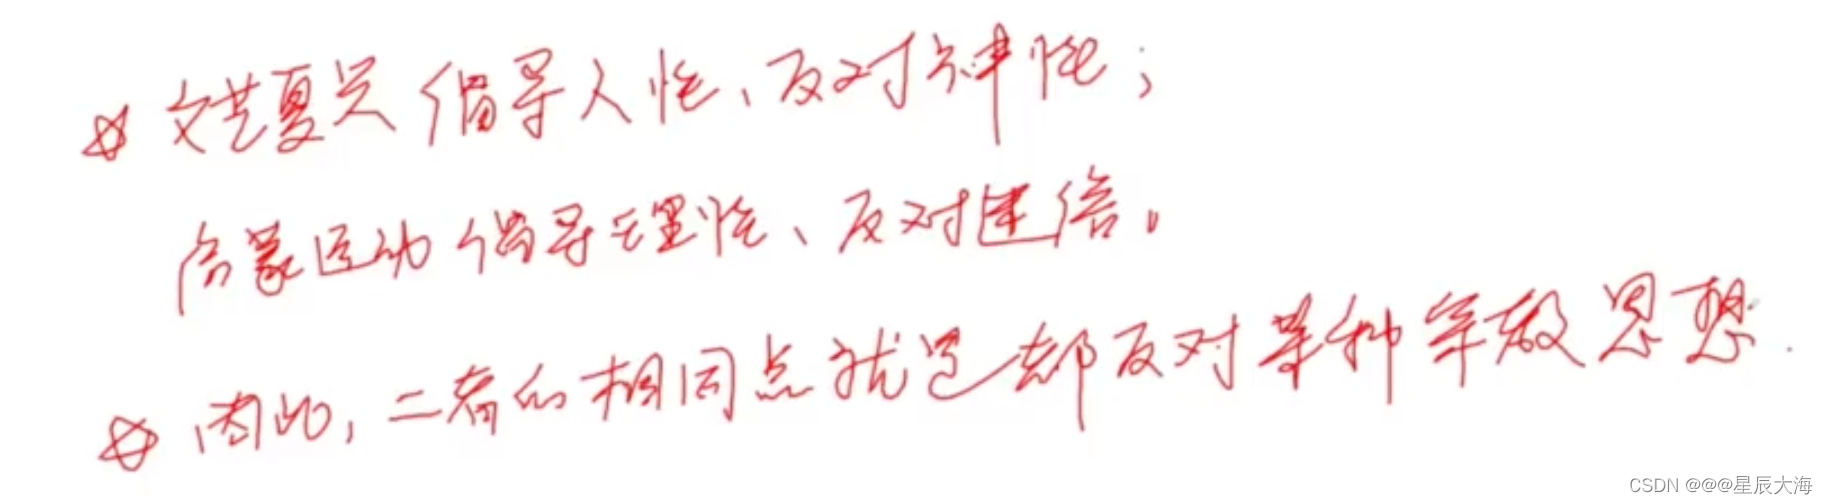 ☆ 文艺复兴倡导人性、反对神性;
启蒙运动倡导理性、反对建信。
☆ 因此,二者的相同点就是都反对某种宗教思想.
CSDN @@@星辰大海